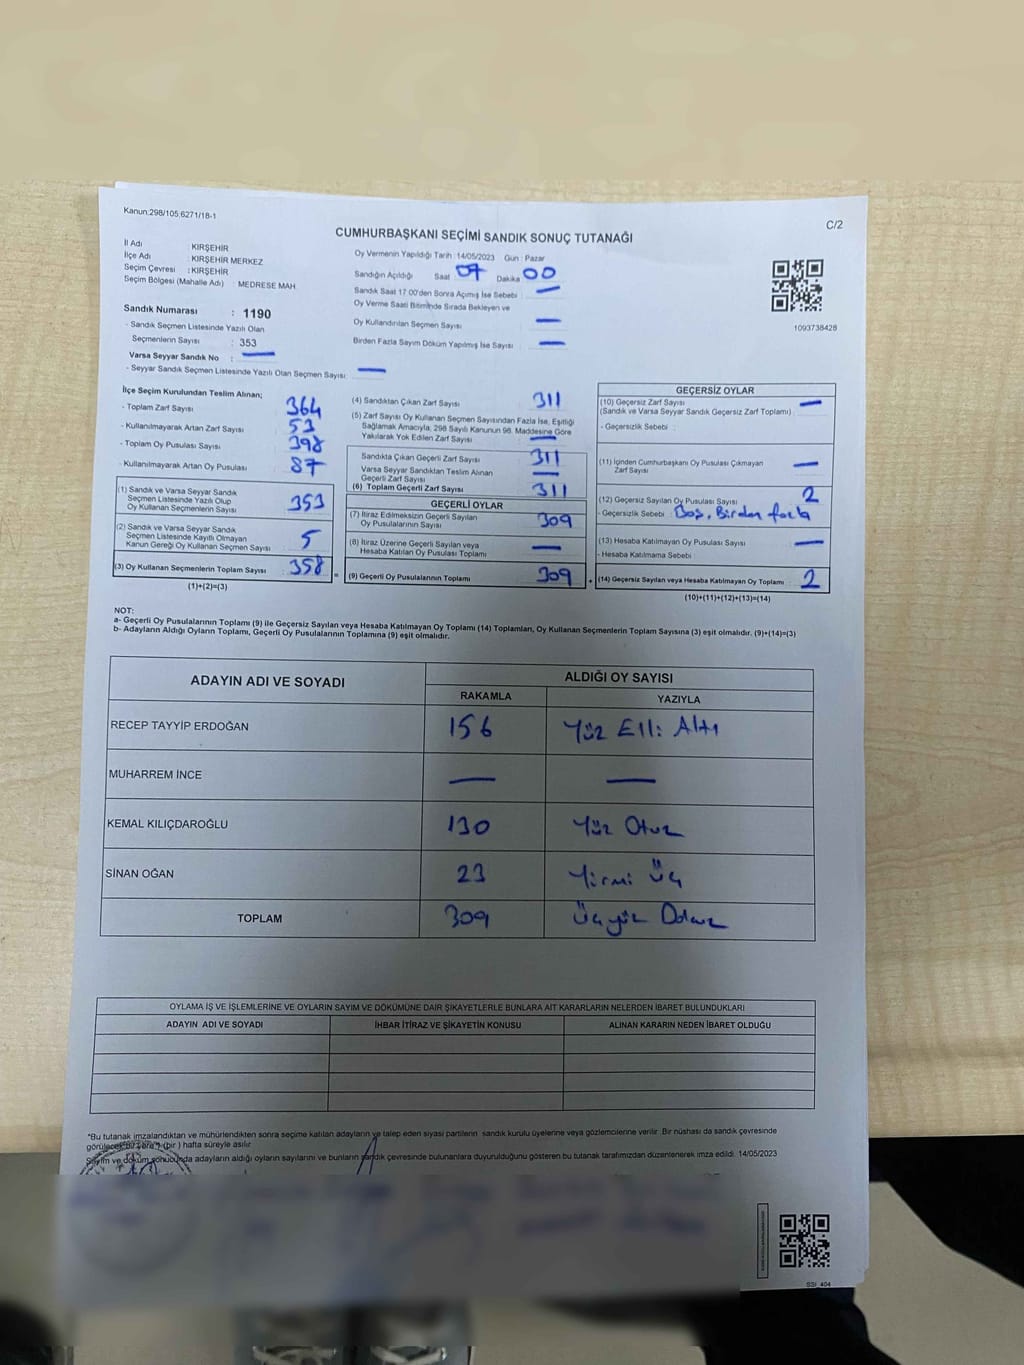 Kanun:298/105;6271/18-1
C/2
CUMHURBAŞKANI SEÇİMİ SANDIK SONUÇ TUTANAĞI
İl Adı : KIRŞEHİR
İlçe Adı : KIRŞEHİR MERKEZ
Seçim Çevresi : KIRŞEHİR
Seçim Bölgesi (Mahalle Adı) : MEDRESE MAH.
Sandık Numarası : 1190
- Sandık Seçmen Listesinde Yazılı Olan
Seçmenlerin Sayısı : 353
Varsa Seyyar Sandık No : —
- Seyyar Sandık Seçmen Listesinde Yazılı Olan Seçmen Sayısı: —
Oy Vermenin Yapıldığı Tarih :14/05/2023 Gün : Pazar
Sandığın Açıldığı Saat : 07 Dakika : 00
Sandık Saat 17.00'den Sonra Açılmış İse Sebebi : —
Oy Verme Saati Bitiminde Sırada Bekleyen ve
Oy Kullandırılan Seçmen Sayısı —
Birden Fazla Sayım Döküm Yapılmış İse Sayısı : —
1093738428
İlçe Seçim Kurulundan Teslim Alınan;
- Toplam Zarf Sayısı 364
- Kullanılmayarak Artan Zarf Sayısı 53
- Toplam Oy Pusulası Sayısı 398
- Kullanılmayarak Artan Oy Pusulası 87
(1) Sandık ve Varsa Seyyar Sandık
Seçmen Listesinde Yazılı Olup
Oy Kullanan Seçmenlerin Sayısı 353
(2) Sandık ve Varsa Seyyar Sandık
Seçmen Listesinde Kayıtlı Olmayan
Kanun Gereği Oy Kullanan Seçmen Sayısı 5
(3) Oy Kullanan Seçmenlerin Toplam Sayısı 358
(1)+(2)=(3)
(4) Sandıktan Çıkan Zarf Sayısı 311
(5) Zarf Sayısı Oy Kullanan Seçmen Sayısından Fazla İse, Eşitliği
Sağlamak Amacıyla, 298 Sayılı Kanunun 98. Maddesine Göre
Yakılarak Yok Edilen Zarf Sayısı —
Sandıkta Çıkan Geçerli Zarf Sayısı 311
Varsa Seyyar Sandıktan Teslim Alınan
Geçerli Zarf Sayısı —
(6) Toplam Geçerli Zarf Sayısı 311
GEÇERLİ OYLAR
(7) İtiraz Edilmeksizin Geçerli Sayılan
Oy Pusulalarının Sayısı 309
(8) İtiraz Üzerine Geçerli Sayılan veya
Hesaba Katılan Oy Pusulası Toplamı —
= (9) Geçerli Oy Pusulalarının Toplamı 309 +
GEÇERSİZ OYLAR
(10) Geçersiz Zarf Sayısı —
(Sandık ve Varsa Seyyar Sandık Geçersiz Zarf Toplamı)
- Geçersizlik Sebebi :
(11) İçinden Cumhurbaşkanı Oy Pusulası Çıkmayan
Zarf Sayısı —
(12) Geçersiz Sayılan Oy Pusulası Sayısı 2
- Geçersizlik Sebebi : Boş, Birden fazla
(13) Hesaba Katılmayan Oy Pusulası Sayısı —
- Hesaba Katılmama Sebebi
(14) Geçersiz Sayılan veya Hesaba Katılmayan Oy Toplamı 2
(10)+(11)+(12)+(13)=(14)
NOT:
a- Geçerli Oy Pusulalarının Toplamı (9) ile Geçersiz Sayılan veya Hesaba Katılmayan Oy Toplamı (14) Toplamları, Oy Kullanan Seçmenlerin Toplam Sayısına (3) eşit olmalıdır. (9)+(14)=(3)
b- Adayların Aldığı Oyların Toplamı, Geçerli Oy Pusulalarının Toplamına (9) eşit olmalıdır.
ADAYIN ADI VE SOYADI ALDIĞI OY SAYISI
RAKAMLA YAZIYLA
RECEP TAYYİP ERDOĞAN 156 Yüz Elli Altı
MUHARREM İNCE — —
KEMAL KILIÇDAROĞLU 130 Yüz Otuz
SİNAN OĞAN 23 Yirmi Üç
TOPLAM 309 Üçyüz Dokuz
OYLAMA İŞ VE İŞLEMLERİNE VE OYLARIN SAYIM VE DÖKÜMÜNE DAİR ŞİKAYETLERLE BUNLARA AİT KARARLARIN NELERDEN İBARET BULUNDUKLARI
ADAYIN ADI VE SOYADI İHBAR İTİRAZ VE ŞİKAYETİN KONUSU ALINAN KARARIN NEDEN İBARET OLDUĞU
*Bu tutanak imzalandıktan ve mühürlendikten sonra seçime katılan adayların ve talep eden siyasi partilerin sandık kurulu üyelerine veya gözlemcilerine verilir. Bir nüshası da sandık çevresinde
görülecek bir yere 1 (bir ) hafta süreyle asılır.
Sayım ve döküm sonucunda adayların aldığı oyların sayılarını ve bunların sandık çevresinde bulunanlara duyurulduğunu gösteren bu tutanak tarafımızdan düzenlenerek imza edildi. 14/05/2023
SSİ_404